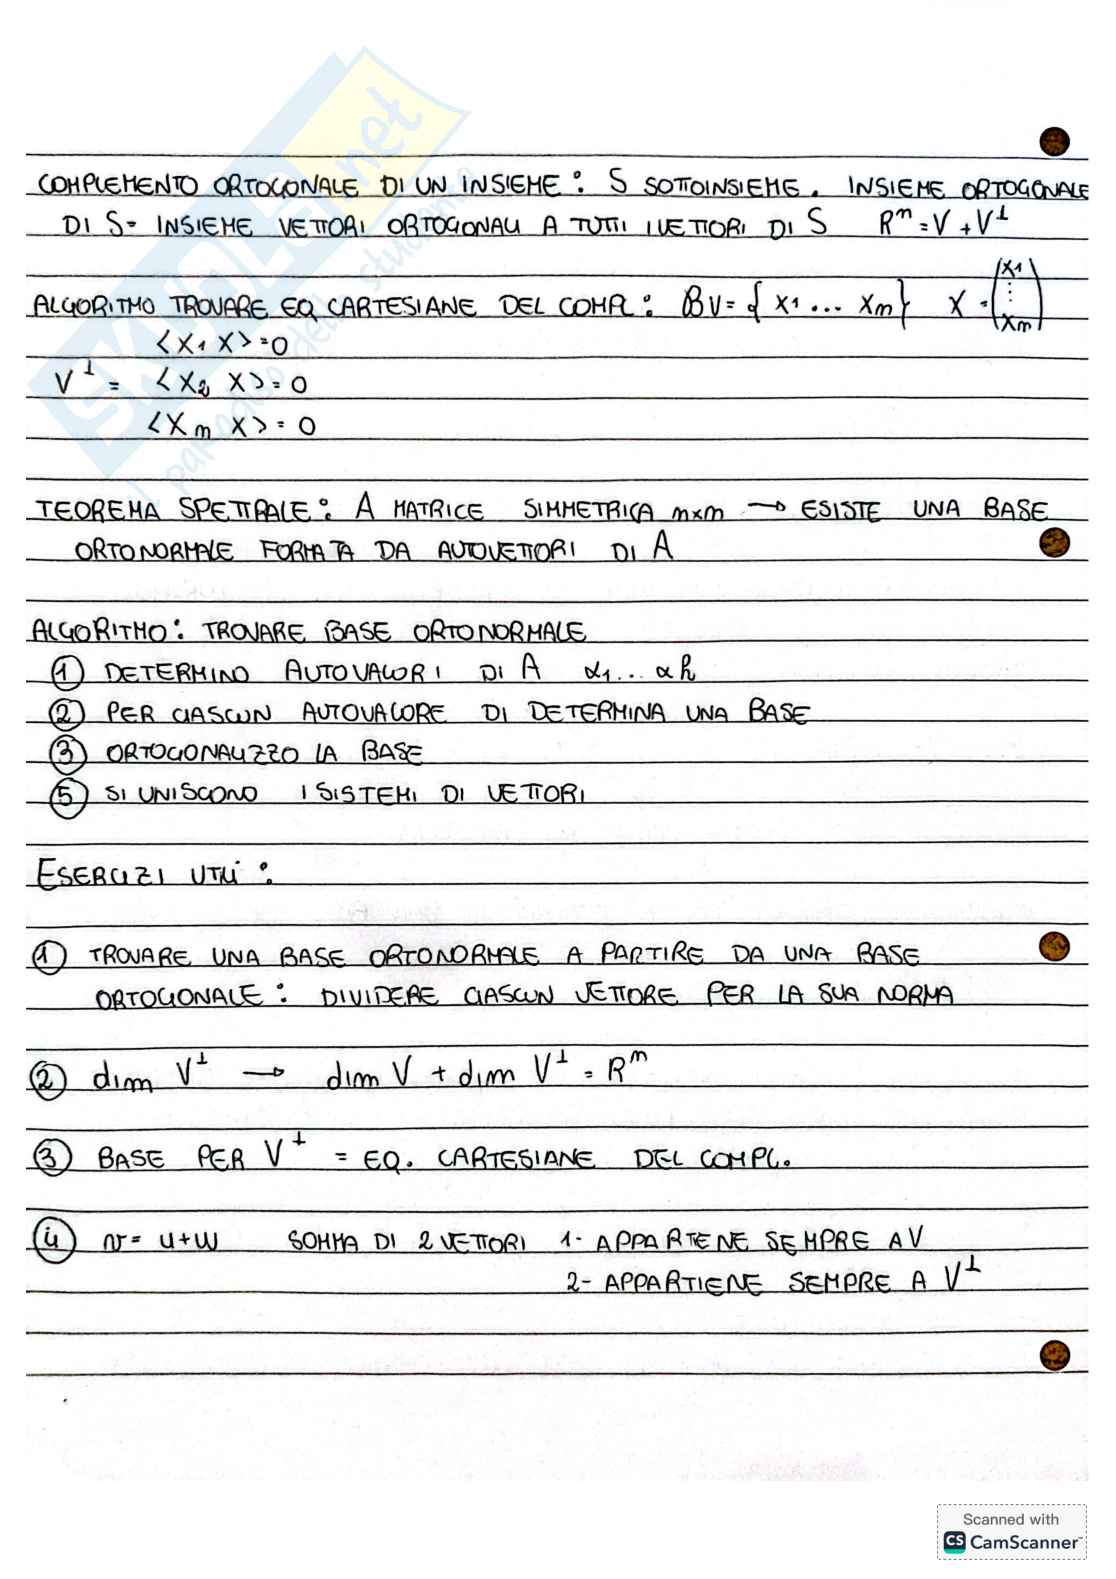 COMPLEMENTO ORTOGONALE DI UN INSIEME: S SOTTOINSIEME. INSIEME ORTOGONALE
DI S= INSIEME VETTORI ORTOGONALI A TUTTI I VETTORI DI S Rⁿ=V+V⊥
ALGORITMO TROVARE EQ CARTESIANE DEL COMPL: BV={X1... Xm} X=(X1 ⋮ Xm)
<X1 X>=0
V⊥= <X2 X>=0
<Xm X>=0
TEOREMA SPETTRALE: A MATRICE SIMMETRICA m×m → ESISTE UNA BASE
ORTONORMALE FORMATA DA AUTOVETTORI DI A
ALGORITMO: TROVARE BASE ORTONORMALE
① DETERMINO AUTOVALORI DI A α1... αh
② PER CIASCUN AUTOVALORE DI DETERMINA UNA BASE
③ ORTOGONALIZZO LA BASE
⑤ SI UNISCONO I SISTEMI DI VETTORI
ESERCIZI UTILI:
① TROVARE UNA BASE ORTONORMALE A PARTIRE DA UNA BASE
ORTOGONALE: DIVIDERE CIASCUN VETTORE PER LA SUA NORMA
② dim V⊥ → dim V + dim V⊥ = Rⁿ
③ BASE PER V⊥ = EQ. CARTESIANE DEL COMPL.
④ v= u+w SOMMA DI 2 VETTORI 1- APPARTIENE SEMPRE A V
2- APPARTIENE SEMPRE A V⊥
SKUOLA.net
il paradiso dello studente
Scanned with
CS CamScanner